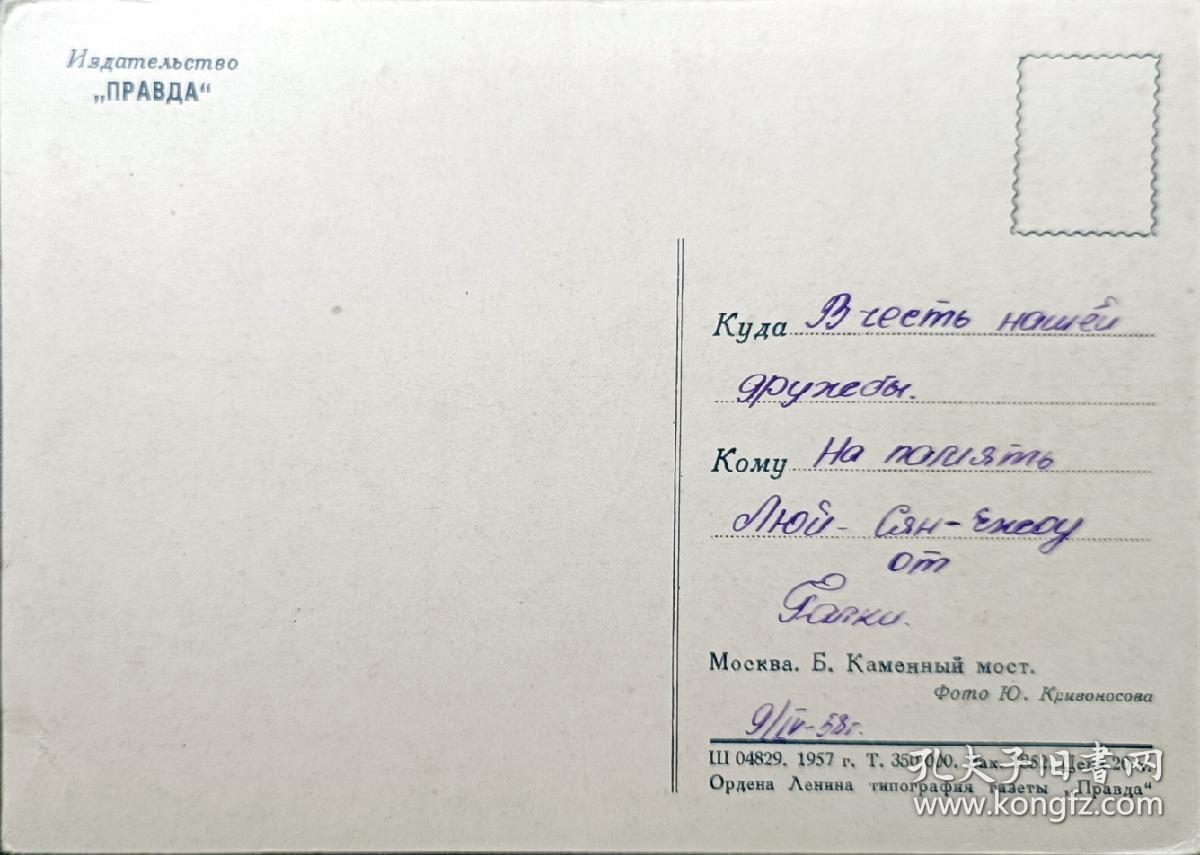 Издательство
„ПРАВДА“
Куда В честь нашей
дружбы.
Кому На память
Люй - Сян-
от
Галки.
Москва. Б. Каменный мост.
Фото Ю. Кривоносова
9/IV-58г.
Ш 04829. 1957 г. Т. 350.000.
Ордена Ленина типография газеты „Правда“
孔夫子旧书网
www.kongfz.com